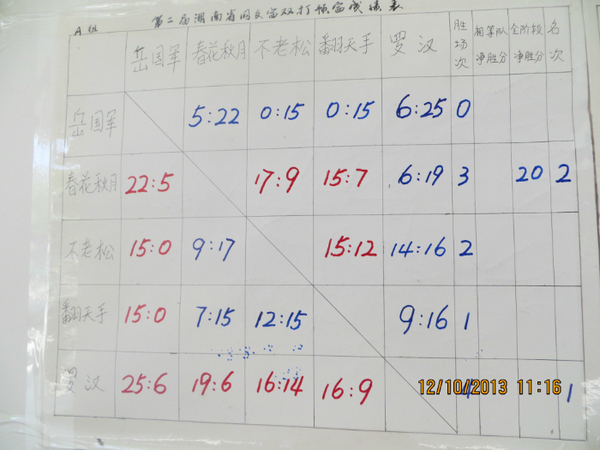 A组 第二届湖南省网友密双打预赛成绩表
岳国军 春花秋月 不老松 翻天手 罗汉 胜场次 相等队净胜分 全阶段净胜分 名次
岳国军 5:22 0:15 0:15 6:25 0
春花秋月 22:5 17:9 15:7 6:19 3 20 2
不老松 15:0 9:17 15:12 14:16 2
翻天手 15:0 7:15 12:15 9:16 1
罗汉 25:6 19:6 16:14 16:9 4 1
12/10/2013 11:16